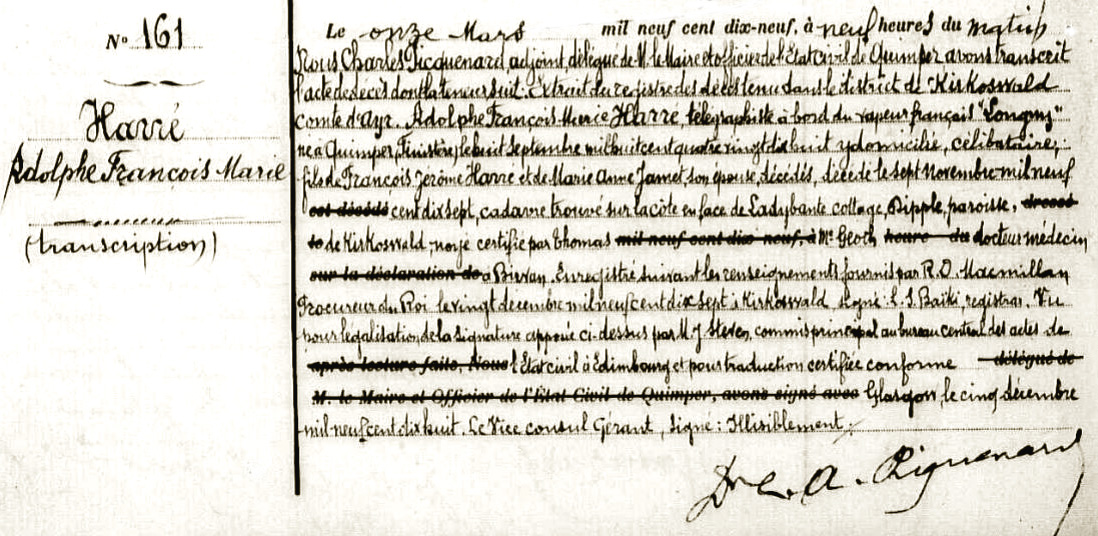 N° 161
Harré
Adolphe François Marie
(transcription)
Le onze Mars mil neuf cent dix-neuf, à neuf heures du matin
Nous Charles Picquenard adjoint, délégué de M. le Maire et officier de l'Etat Civil de Quimper avons transcrit
l'acte de décès dont la teneur suit. Extrait du registre des décès tenu dans le district de Kirkoswald
comté d'Ayr. Adolphe François Marie Harré, télégraphiste à bord du vapeur français "Longwy"
né à Quimper, Finistère, le huit Septembre mil huit cent quatre vingt dix huit y domicilié, célibataire,
fils de François Jérôme Harré et de Marie Anne Jamet, son épouse, décédés, décédé le sept Novembre mil neuf
est décédé cent dix sept, cadavre trouvé sur la côte en face de Ladybante cottage, Dipple, paroisse,
de Kirkoswald, noyé certifié par Thomas mil neuf cent dix-neuf, à Mc Geoch heure du docteur médecin
sur la déclaration de à Birvan. Enregistré suivant les renseignements fournis par R. D. Macmillan
Procureur du Roi le vingt décembre mil neuf cent dix sept à Kirkoswald signé: L. S. Baïki, registrar. Vu
pour légalisation de la signature apposée ci-dessus par M. J Steven, commis principal au bureau central des actes de
après lecture faite, Nous l'Etat civil à Edimbourg et pour traduction certifiée conforme délégué de
M. le Maire et Officier de l'Etat Civil de Quimper, avons signé avec Glasgow, le cinq décembre
mil neuf cent dix huit. Le Vice consul Gérant, signé: Illisiblement.